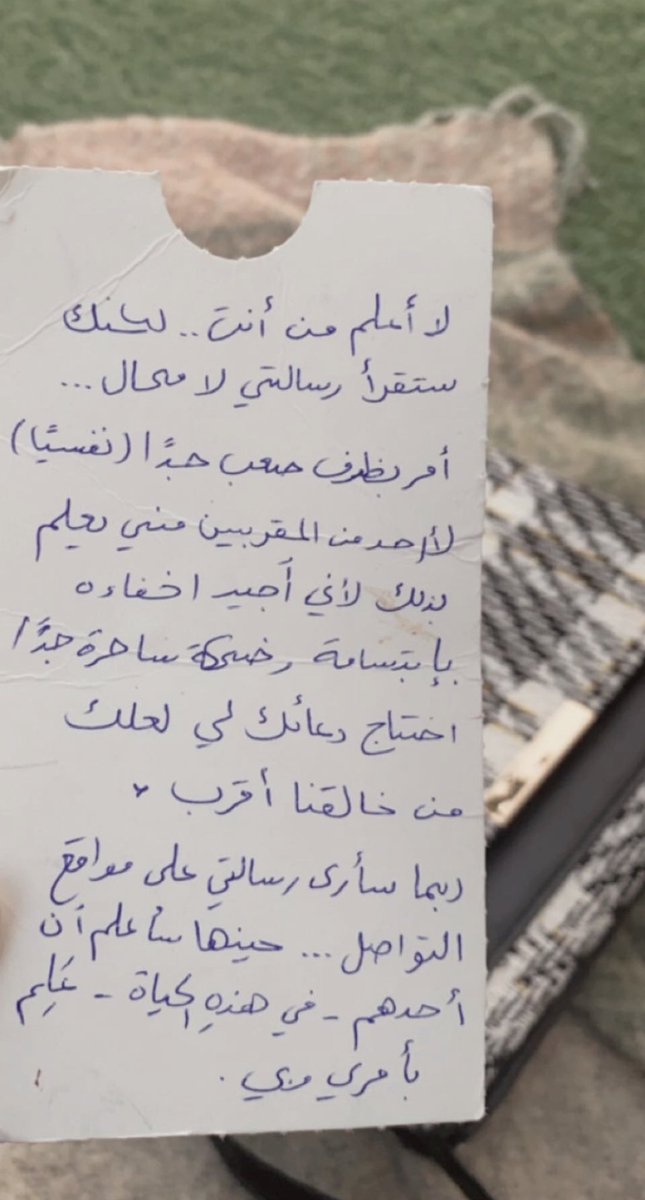 لا أعلم من أنت .. لكنك
ستقرأ رسالتي لا محال ...
أمر بظرف صعب جدًا (نفسيًا)
لا أحد من المقربين مني يعلم
بذلك لأني أجيد اخفاءه
بإبتسامة وضحكة ساحرة جدًا
احتاج دعائك لي لعلك
من خالقنا أقرب
ربما سأرى رسالتي على مواقع
التواصل ... حينها سأعلم أن
أحدهم - في هذهِ الحياة - عَلِم
بأمري وبي .